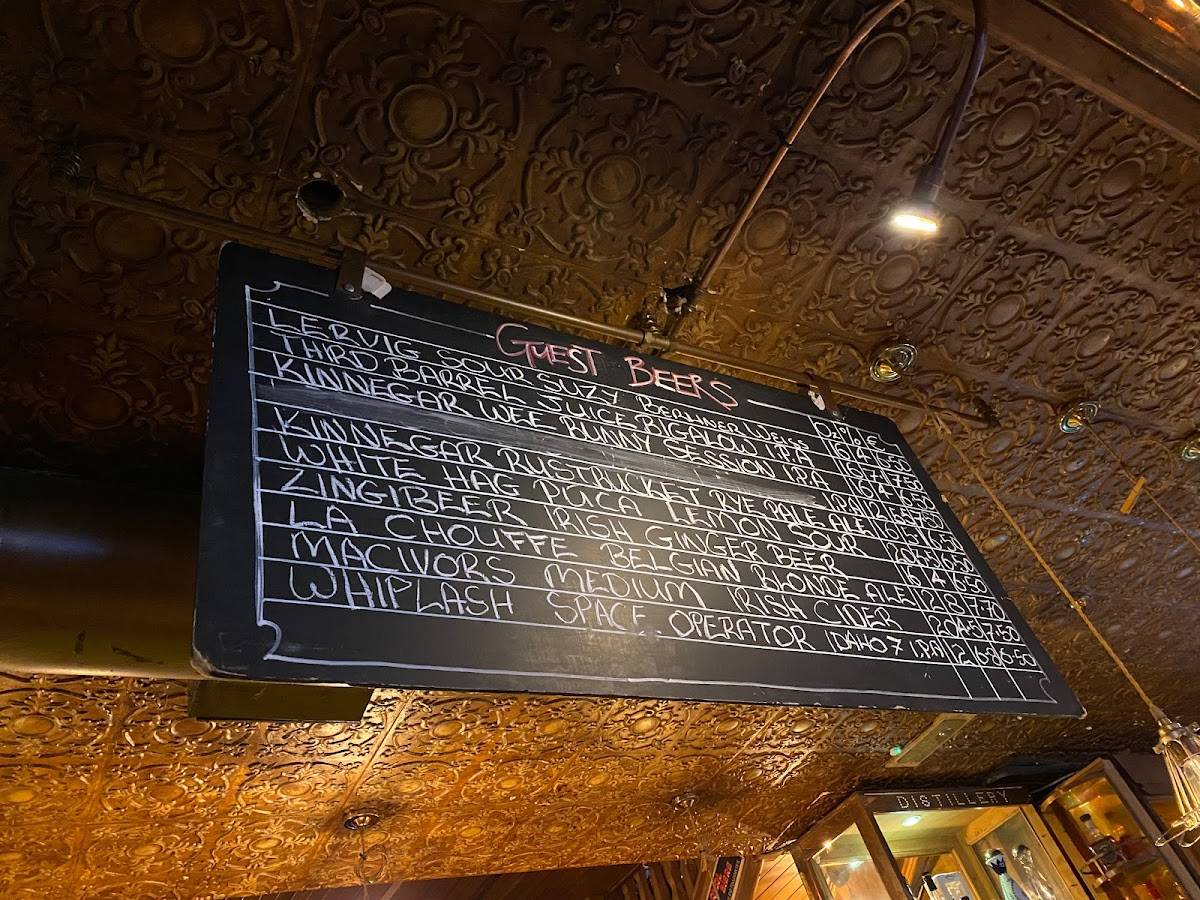 GUEST BEERS
Oz % €
LERVIG SOUR SUZY BERLINER WEISS 16 4 6.50
THIRD BARREL JUICE BIGALOW IPA 16
KINNEGAR WEE BUNNY SESSION IPA 16 4
KINNEGAR RUSTBUCKET RYE PALE ALE
WHITE HAG PUCA LEMON SOUR
ZINGIBEER IRISH GINGER BEER 16 4 6.50
LA CHOUFFE BELGIAN BLONDE ALE 12 8 7.70
MACIVORS MEDIUM IRISH CIDER 20 4.5 7.50
WHIPLASH SPACE OPERATOR IDAHO 7 IPA 12 6.8 6.50
DISTILLERY